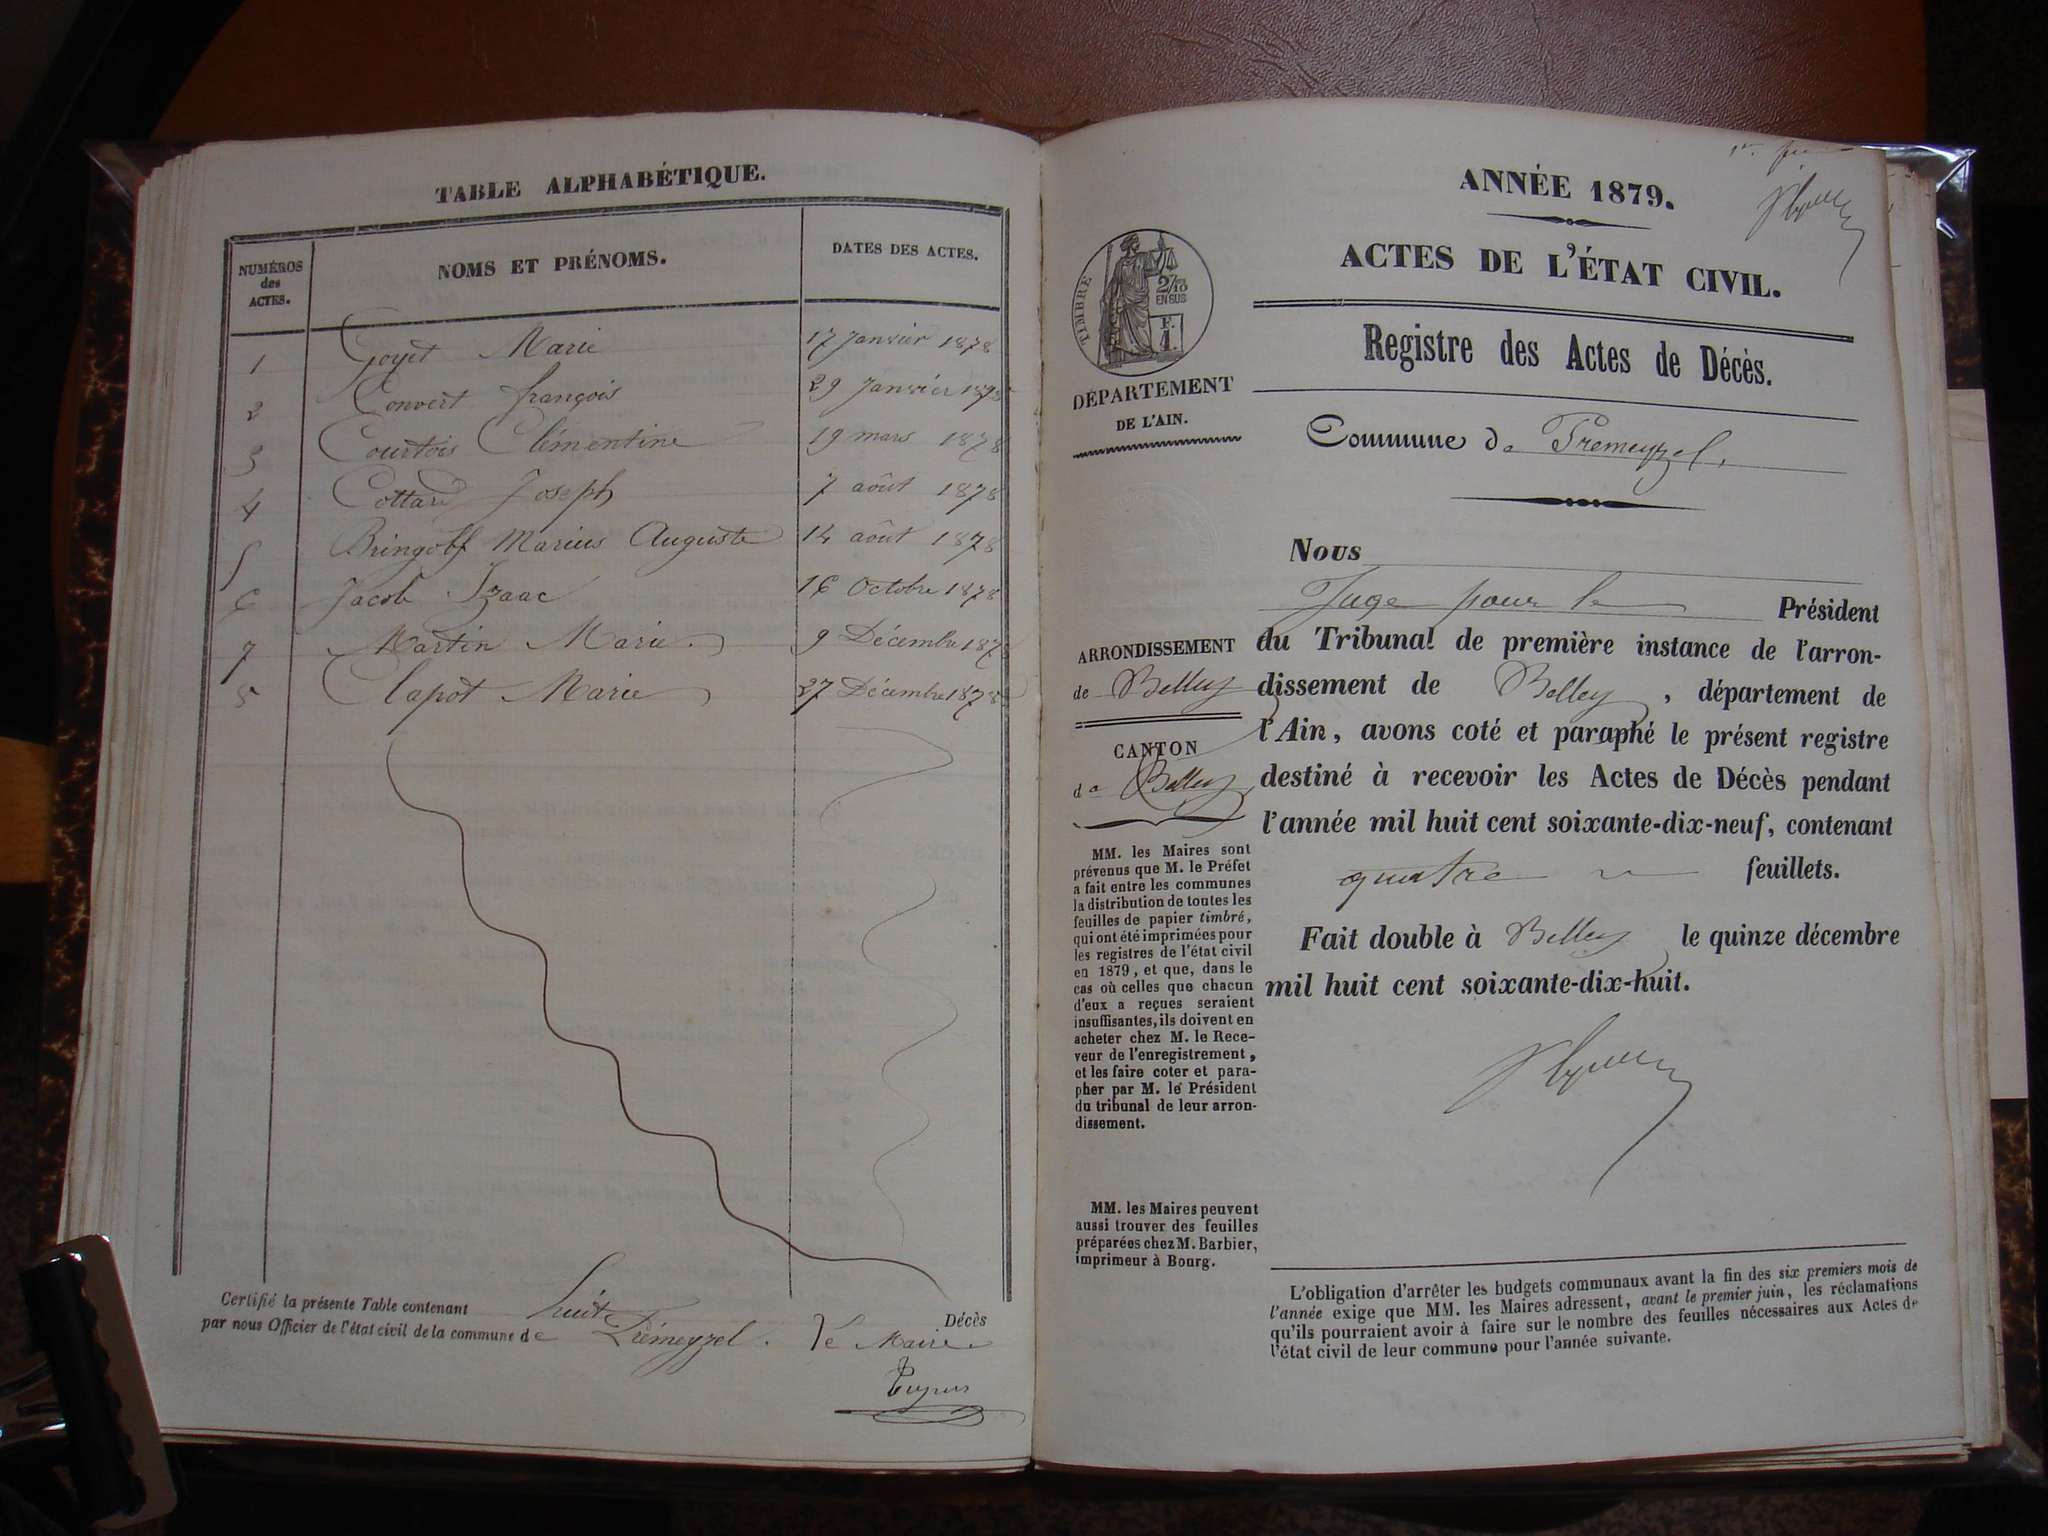 TABLE ALPHABÉTIQUE.
NUMÉROS des ACTES.
NOMS ET PRÉNOMS.
DATES DES ACTES.
1 Goyet Marie 17 Janvier 1878
2 Convert françois 29 Janvier 1878
3 Courtois Clémentine 19 mars 1878
4 Cottard Joseph 7 août 1878
5 Bringoff Marius Auguste 14 août 1878
6 Jacob Izaac 16 Octobre 1878
7 Martin Marie 9 Décembre 1878
8 Clapot Marie 27 Décembre 1878
Certifié la présente Table contenant huit Décès
par nous Officier de l'état civil de la commune de Prémeyzel. Le Maire
ANNÉE 1879.
ACTES DE L'ÉTAT CIVIL.
Registre des Actes de Décès.
Commune de Premeyzel.
TIMBRE
2/10
EN SUS
F.
1.
DÉPARTEMENT
DE L'AIN.
ARRONDISSEMENT
de Belley
CANTON
de Belley
MM. les Maires sont
prévenus que M. le Préfet
a fait entre les communes
la distribution de toutes les
feuilles de papier timbré,
qui ont été imprimées pour
les registres de l'état civil
en 1879, et que, dans le
cas où celles que chacun
d'eux a reçues seraient
insuffisantes, ils doivent en
acheter chez M. le Rece-
veur de l'enregistrement,
et les faire coter et para-
pher par M. le Président
du tribunal de leur arron-
dissement.
MM. les Maires peuvent
aussi trouver des feuilles
préparées chez M. Barbier,
imprimeur à Bourg.
Nous
Juge pour le Président
du Tribunal de première instance de l'arron-
dissement de Belley, département de
l'Ain, avons coté et paraphé le présent registre
destiné à recevoir les Actes de Décès pendant
l'année mil huit cent soixante-dix-neuf, contenant
quatre feuillets.
Fait double à Belley le quinze décembre
mil huit cent soixante-dix-huit.
L'obligation d'arrêter les budgets communaux avant la fin des six premiers mois de
l'année exige que MM. les Maires adressent, avant le premier juin, les réclamations
qu'ils pourraient avoir à faire sur le nombre des feuilles nécessaires aux Actes de
l'état civil de leur commune pour l'année suivante.